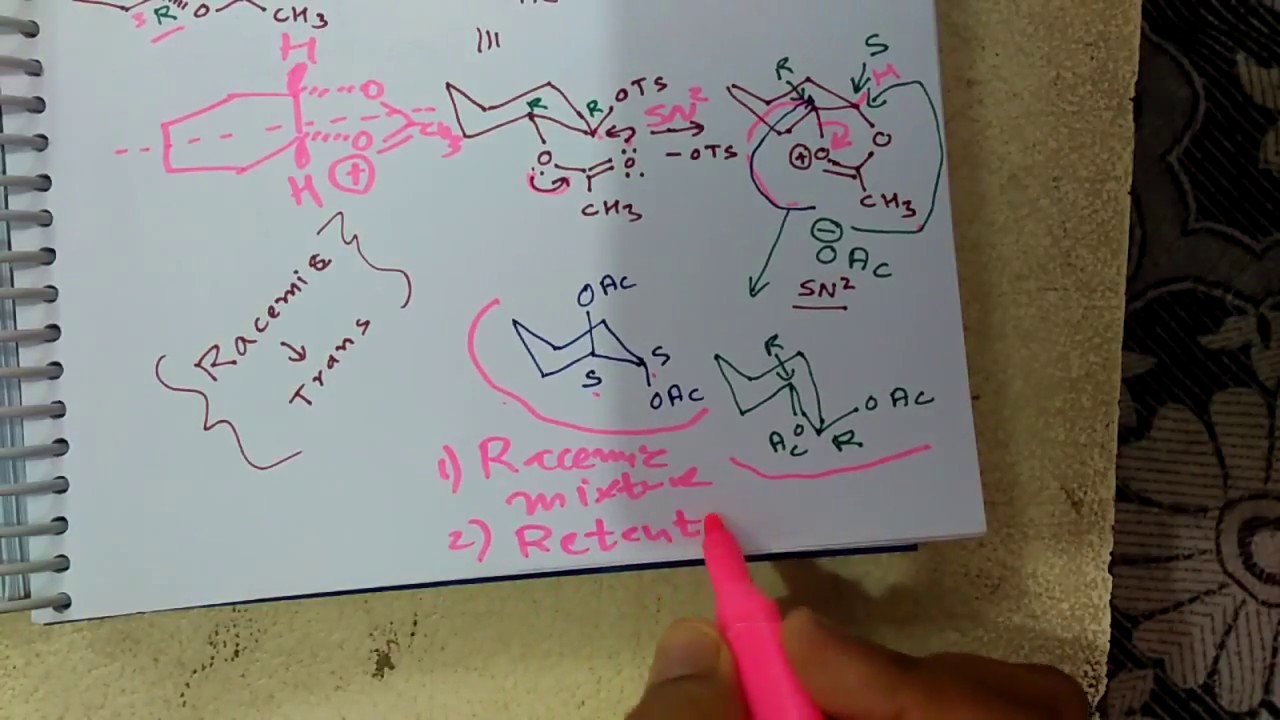 3 R O CH3
H
O
O
CH3
H
+
R R OTS
O
O
CH3
SN2
-OTS
R S H
O
+ O
CH3
-
OAc
SN2
Racemic
Trans
OAc
S S
OAc
R
OAc
OAc R
1) Racemic
mixture
2) Retent